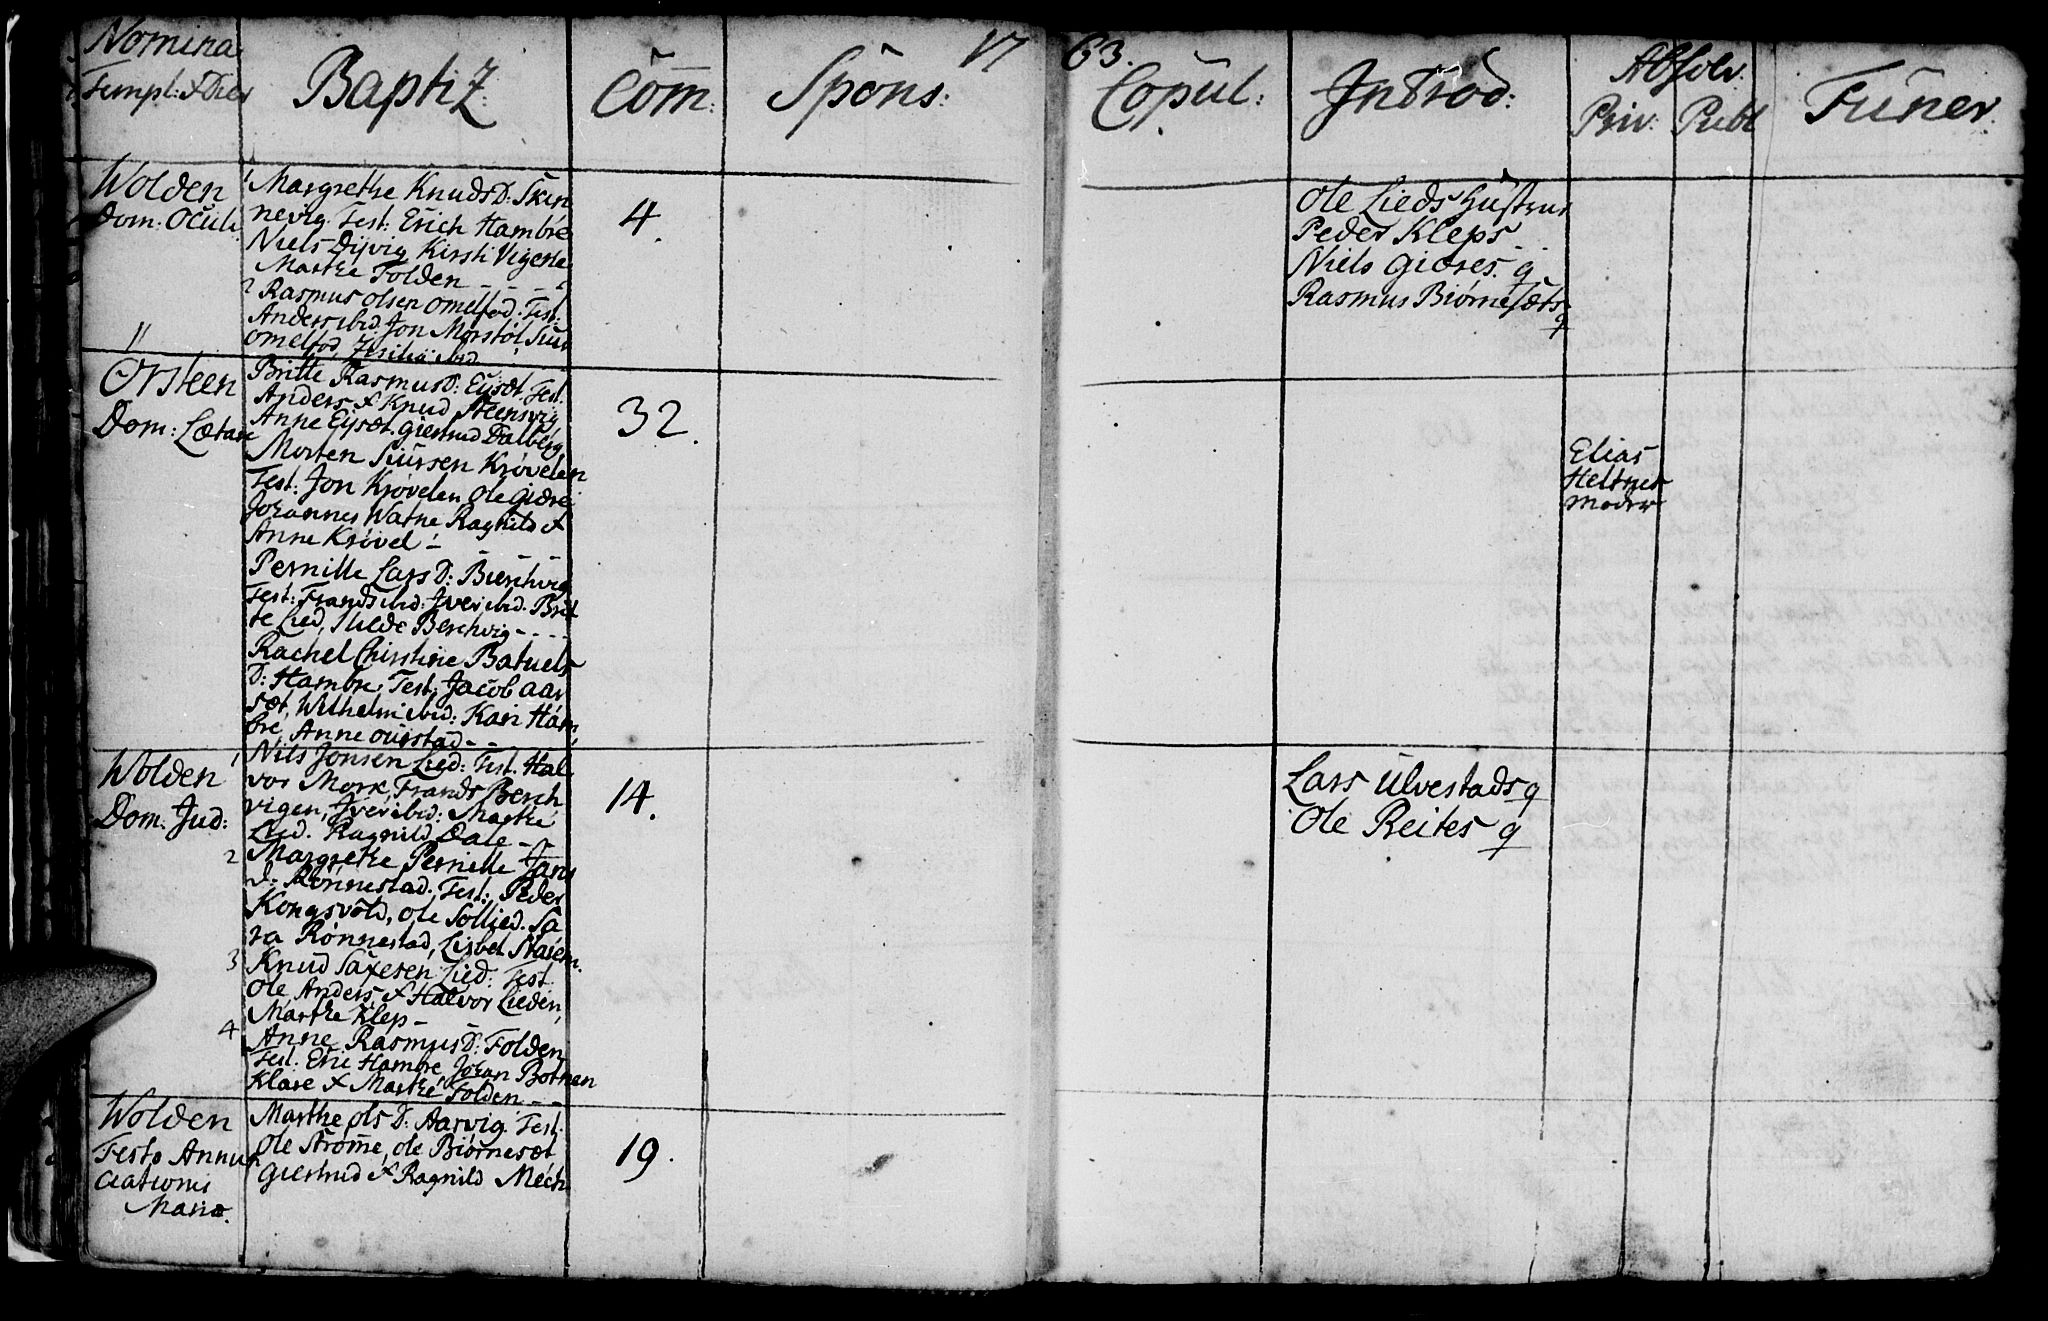 Nomina
Templ: & Dier
Baptiz:
Com:
Spons:
17
63.
Copul:
Introd:
Absolv.
Priv:
Publ
Funer.
Wolden
Dom: Oculi
1 Margrethe Knuds D: Skin
nevig. Test: Erich Hambre
Niels Dijvig Kirsti Vigerne
Marthe Folden
2 Rasmus Olsen Omelfod. Test:
Anders ibid. Jon Morstøl, Siur
Omelfod, ibid
4.
Ole Lieds Hustrue
Peder Kleps
Niels Giæres q
Rasmus Biørnesæts
q
Ørsteen
Dom: Lætare
Britte Rasmus D: Eijsæt. Test.
Anders & Knud Steensvig
Anne Eijsæt. Giertrud Dalberg
Morten Siursen Krøvelen
Test: Jon Krøvelen Ole Giærei
Johannes Watne Ragnild &
Anne Krøvel
Pernille Lars D: Bierchvig
Test: Frands ibid: Iver ibid. Brit
te Lied, Berchvig
Rachel Christine Batuels
D: Hambre, Test: Jacob Aar
sæt, Wilhelm ibid: Kari Ham
bre, Anne Ouistad
32.
Elias
Heltnes
Moder
Wolden
Dom: Jud:
1 Nils Jonsen Lied: Test. Hal
vor Mork, Frands Berch
vigen, Iver ibid: Marthe
Lied. Ragnild Dale
2 Margrethe Pernille Jans
D: Rønnestad. Test: Peder
Kongsvold, Ole Sollied. Sa
ra Rønnestad, Lisbet
3 Knud Saxesen Lied: Test
Ole Anders, & Halvor Lieden,
Marthe Klep
4 Anne Rasmus D: Folden
Test: Eric Hambre Johan Botnen
Klare & Marthe Folden
14.
Lars Ulvestads q
Ole Reites q
Wolden
Festo Annun
ciationis
Mariæ.
Marthe Ols D: Aarvig. Test.
Ole Strømme, Ole Biørnesæt
Giertrud & Ragnild
19.